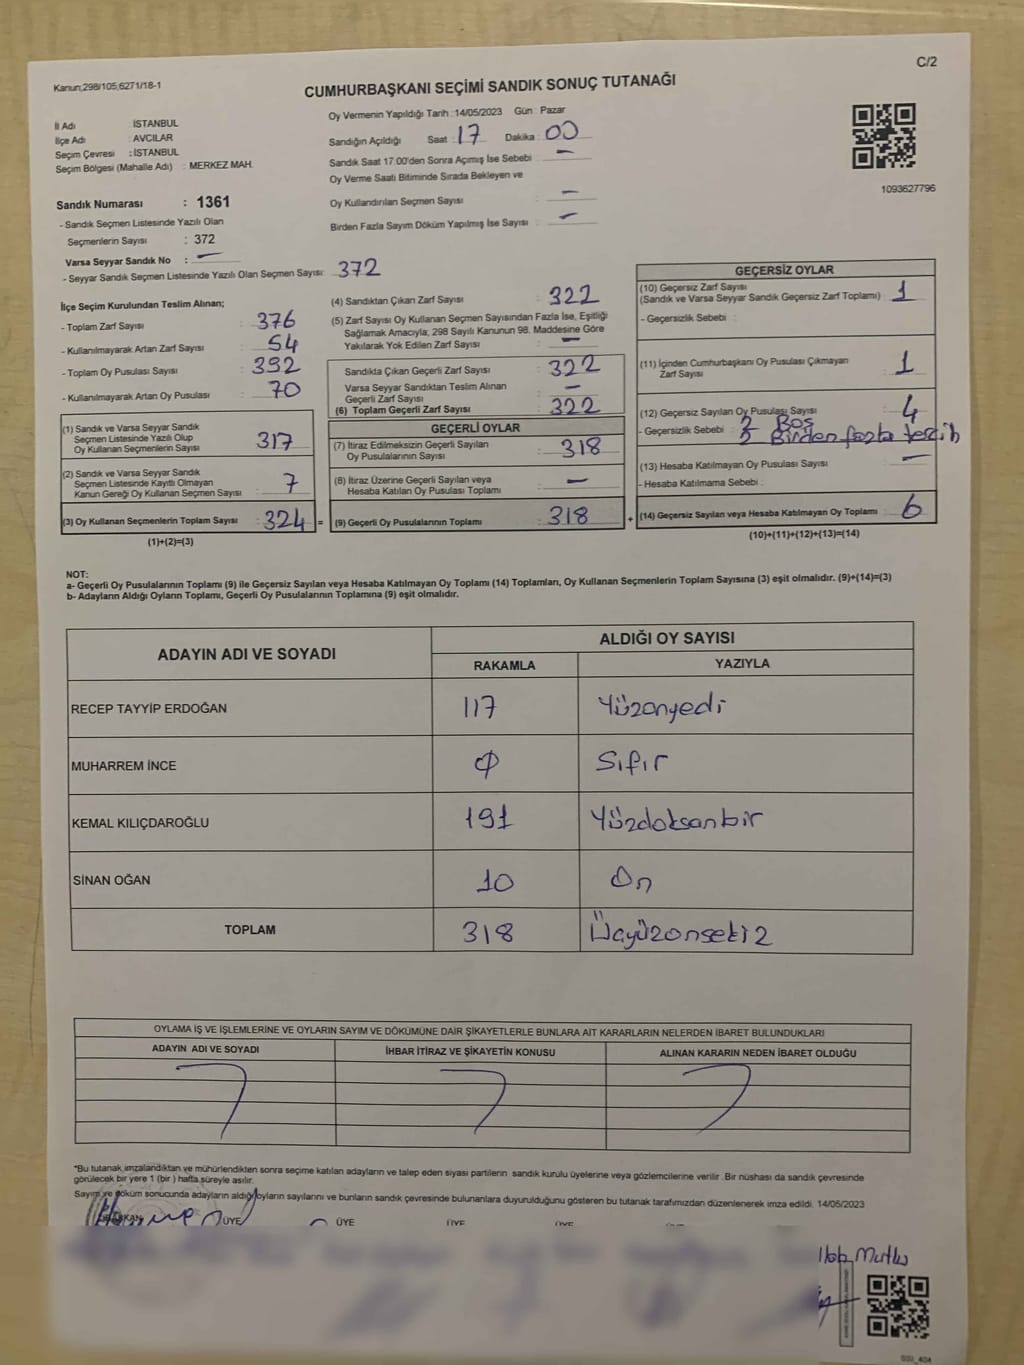 C/2
Kanun;298/105,6271/18-1
CUMHURBAŞKANI SEÇİMİ SANDIK SONUÇ TUTANAĞI
İl Adı : İSTANBUL
İlçe Adı : AVCILAR
Seçim Çevresi : İSTANBUL
Seçim Bölgesi (Mahalle Adı) : MERKEZ MAH.
Sandık Numarası : 1361
- Sandık Seçmen Listesinde Yazılı Olan
Seçmenlerin Sayısı : 372
Varsa Seyyar Sandık No : —
- Seyyar Sandık Seçmen Listesinde Yazılı Olan Seçmen Sayısı: 372
Oy Vermenin Yapıldığı Tarih :14/05/2023 Gün : Pazar
Sandığın Açıldığı Saat : 17 Dakika : 00
Sandık Saat 17:00'den Sonra Açımış İse Sebebi : —
Oy Verme Saati Bitiminde Sırada Bekleyen ve
Oy Kullandırılan Seçmen Sayısı : —
Birden Fazla Sayım Döküm Yapılmış İse Sayısı : —
1093627796
İlçe Seçim Kurulundan Teslim Alınan;
- Toplam Zarf Sayısı : 376
- Kullanılmayarak Artan Zarf Sayısı : 54
- Toplam Oy Pusulası Sayısı : 392
- Kullanılmayarak Artan Oy Pusulası : 70
(1) Sandık ve Varsa Seyyar Sandık
Seçmen Listesinde Yazılı Olup
Oy Kullanan Seçmenlerin Sayısı : 317
(2) Sandık ve Varsa Seyyar Sandık
Seçmen Listesinde Kayıtlı Olmayan
Kanun Gereği Oy Kullanan Seçmen Sayısı : 7
(3) Oy Kullanan Seçmenlerin Toplam Sayısı : 324 =
(1)+(2)=(3)
(4) Sandıktan Çıkan Zarf Sayısı : 322
(5) Zarf Sayısı Oy Kullanan Seçmen Sayısından Fazla İse, Eşitliği
Sağlamak Amacıyla; 298 Sayılı Kanunun 98. Maddesine Göre
Yakılarak Yok Edilen Zarf Sayısı : —
Sandıkta Çıkan Geçerli Zarf Sayısı : 322
Varsa Seyyar Sandıktan Teslim Alınan
Geçerli Zarf Sayısı : —
(6) Toplam Geçerli Zarf Sayısı : 322
GEÇERLİ OYLAR
(7) İtiraz Edilmeksizin Geçerli Sayılan
Oy Pusulalarının Sayısı : 318
(8) İtiraz Üzerine Geçerli Sayılan veya
Hesaba Katılan Oy Pusulası Toplamı : —
(9) Geçerli Oy Pusulalarının Toplamı : 318 +
GEÇERSİZ OYLAR
(10) Geçersiz Zarf Sayısı
(Sandık ve Varsa Seyyar Sandık Geçersiz Zarf Toplamı) : 1
- Geçersizlik Sebebi :
(11) İçinden Cumhurbaşkanı Oy Pusulası Çıkmayan
Zarf Sayısı : 1
(12) Geçersiz Sayılan Oy Pusulası Sayısı : 4
- Geçersizlik Sebebi : 2 Boş
2 Birden fazla tercih
(13) Hesaba Katılmayan Oy Pusulası Sayısı : —
- Hesaba Katılmama Sebebi :
(14) Geçersiz Sayılan veya Hesaba Katılmayan Oy Toplamı : 6
(10)+(11)+(12)+(13)=(14)
NOT:
a- Geçerli Oy Pusulalarının Toplamı (9) ile Geçersiz Sayılan veya Hesaba Katılmayan Oy Toplamı (14) Toplamları, Oy Kullanan Seçmenlerin Toplam Sayısına (3) eşit olmalıdır. (9)+(14)=(3)
b- Adayların Aldığı Oyların Toplamı, Geçerli Oy Pusulalarının Toplamına (9) eşit olmalıdır.
ADAYIN ADI VE SOYADI
ALDIĞI OY SAYISI
RAKAMLA YAZIYLA
RECEP TAYYİP ERDOĞAN 117 Yüzonyedi
MUHARREM İNCE 0 Sıfır
KEMAL KILIÇDAROĞLU 191 Yüzdoksanbir
SİNAN OĞAN 10 On
TOPLAM 318 Üçyüzonsekiz
OYLAMA İŞ VE İŞLEMLERİNE VE OYLARIN SAYIM VE DÖKÜMÜNE DAİR ŞİKAYETLERLE BUNLARA AİT KARARLARIN NELERDEN İBARET BULUNDUKLARI
ADAYIN ADI VE SOYADI İHBAR İTİRAZ VE ŞİKAYETİN KONUSU ALINAN KARARIN NEDEN İBARET OLDUĞU
*Bu tutanak,imzalandıktan ve mühürlendikten sonra seçime katılan adayların ve talep eden siyasi partilerin sandık kurulu üyelerine veya gözlemcilerine verilir. Bir nüshası da sandık çevresinde
görülecek bir yere 1 (bir) hafta süreyle asılır.
Sayım ve döküm sonucunda adayların aldığı oyların sayılarını ve bunların sandık çevresinde bulunanlara duyurulduğunu gösteren bu tutanak tarafımızdan düzenlenerek imza edildi. 14/05/2023
BAŞKAN ÜYE ÜYE ÜYE ÜYE
Mutlu